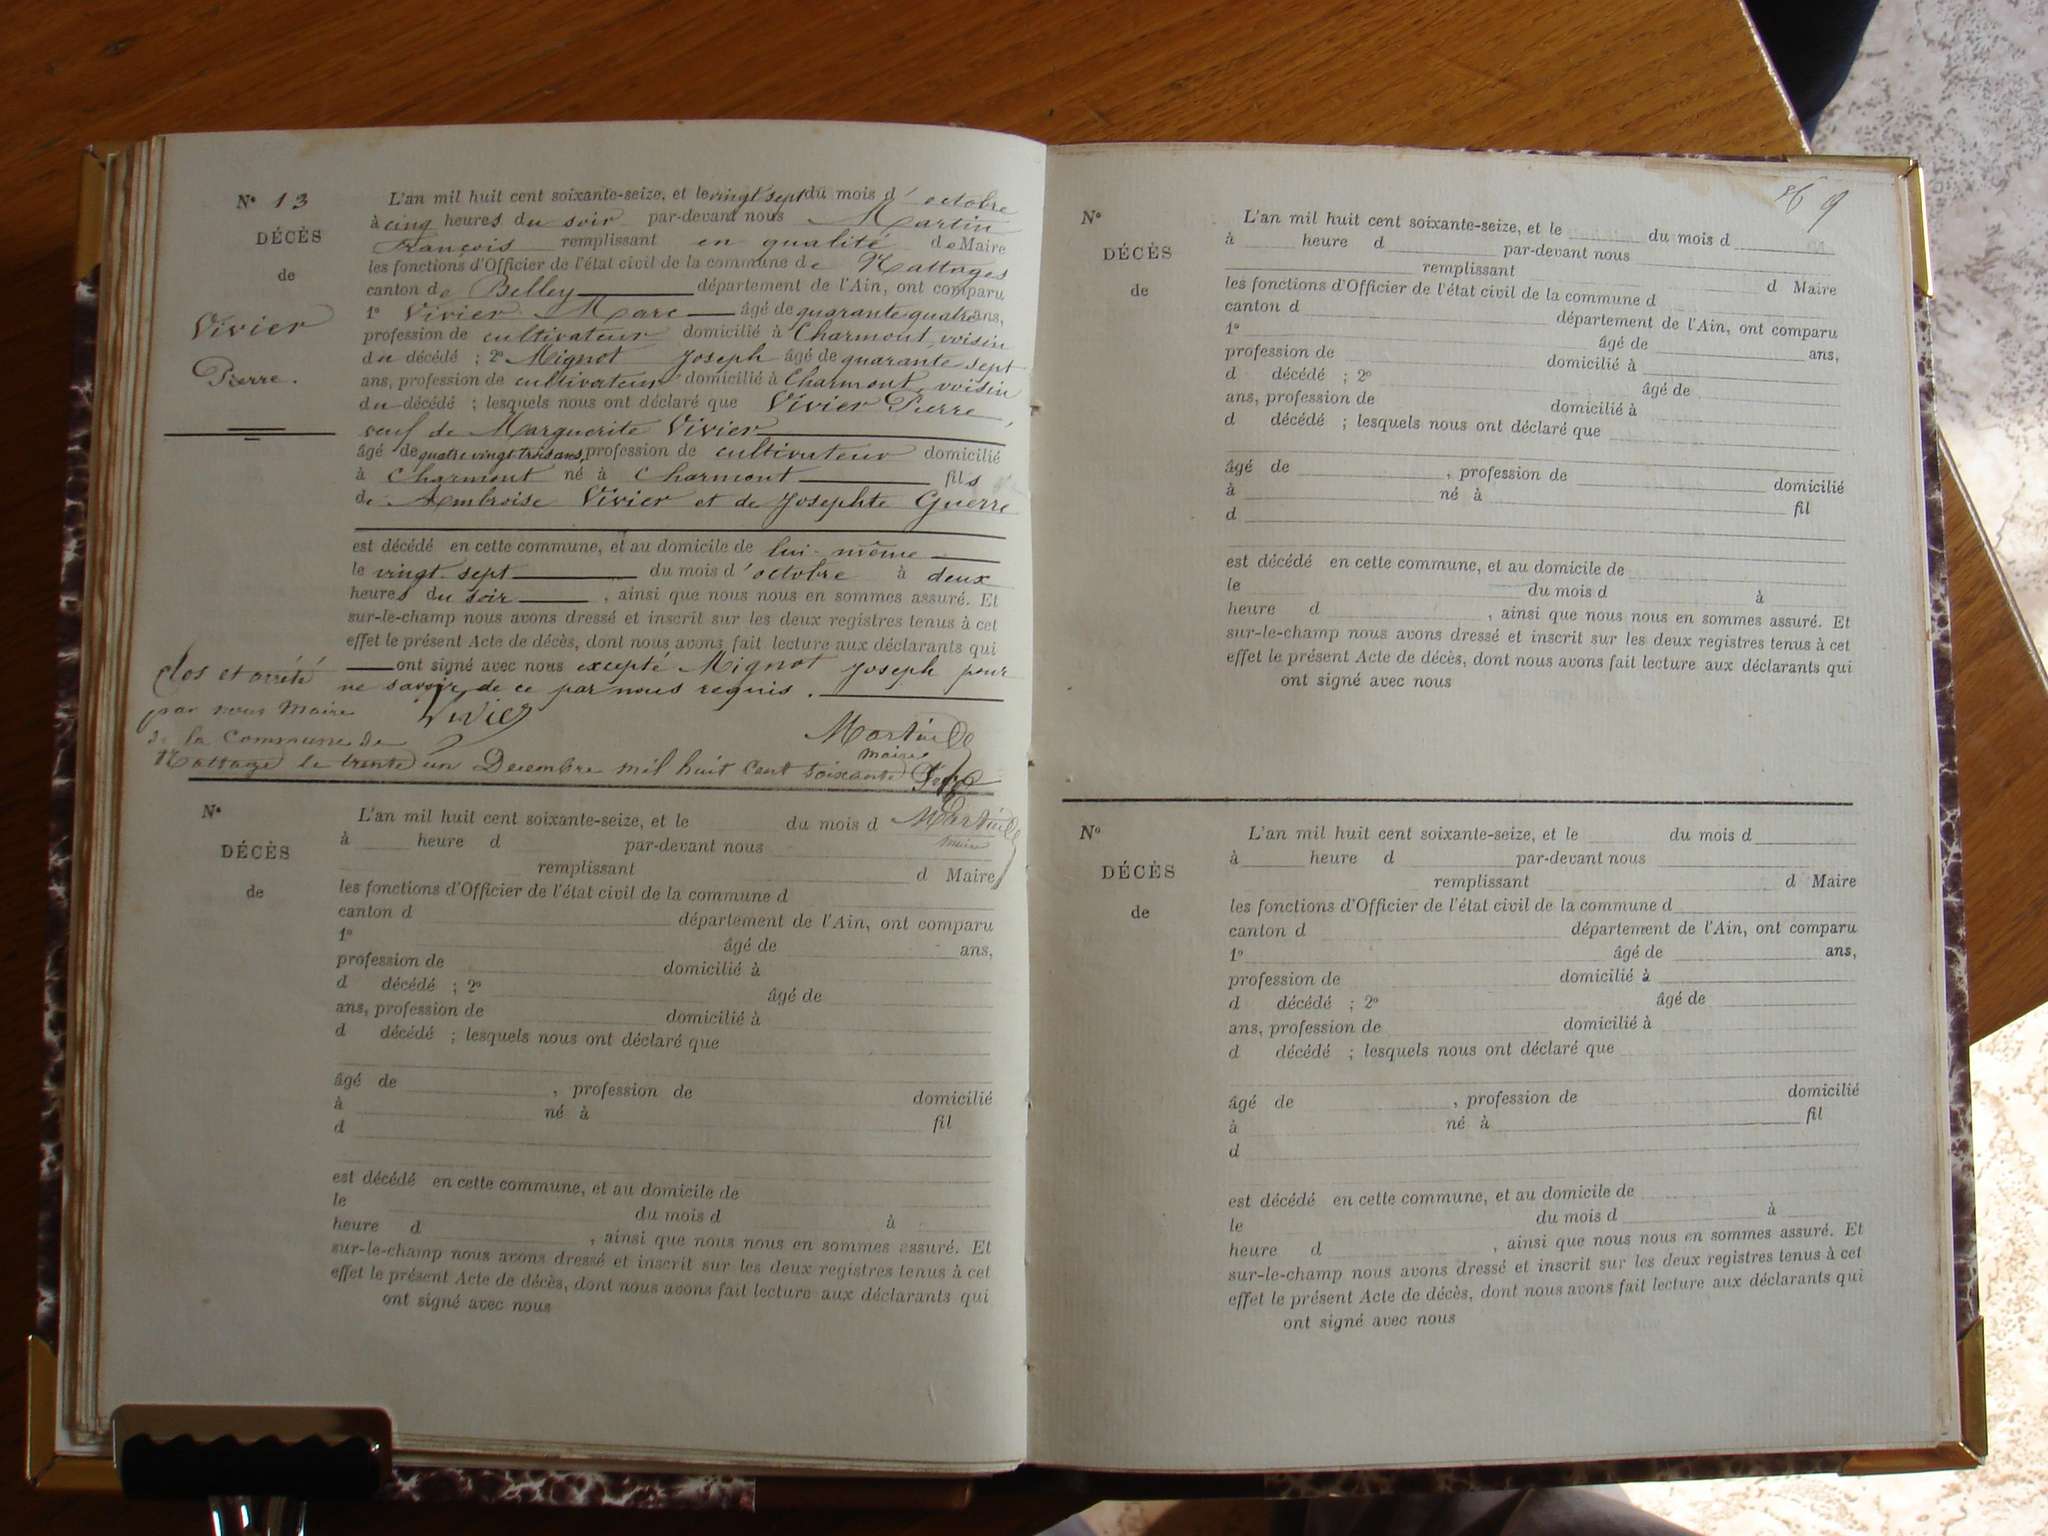 N° 13
DÉCÈS
de
Vivier
Pierre.
L'an mil huit cent soixante-seize, et le vingt sept du mois d'octobre
à cinq heures du soir par-devant nous Martin
François remplissant en qualité de Maire
les fonctions d'Officier de l'état civil de la commune de Nattages
canton de Belley département de l'Ain, ont comparu
1° Vivier Marc âgé de quarante quatre ans,
profession de cultivateur domicilié à Charmont, voisin
du décédé ; 2° Mignot Joseph âgé de quarante sept
ans, profession de cultivateur domicilié à Charmont, voisin
du décédé ; lesquels nous ont déclaré que Vivier Pierre,
veuf de Marguerite Vivier
âgé de quatre vingt trois ans, profession de cultivateur domicilié
à Charmont né à Charmont fils
de Ambroise Vivier et de Josephte Guerre
est décédé en cette commune, et au domicile de lui-même
le vingt sept du mois d'octobre à deux
heures du soir, ainsi que nous nous en sommes assuré. Et
sur-le-champ nous avons dressé et inscrit sur les deux registres tenus à cet
effet le présent Acte de décès, dont nous avons fait lecture aux déclarants qui
ont signé avec nous excepté Mignot Joseph pour
ne savoir, de ce par nous requis.
Vivier
Martin
maire
Clos et arrêté
par nous Maire
de la Commune de
Nattages le trente un Decembre mil huit cent soixante Seize
Martin
maire
N°
DÉCÈS
de
L'an mil huit cent soixante-seize, et le du mois d
à heure d par-devant nous
remplissant d Maire
les fonctions d'Officier de l'état civil de la commune d
canton d département de l'Ain, ont comparu
1° âgé de ans,
profession de domicilié à
d décédé ; 2° âgé de
ans, profession de domicilié à
d décédé ; lesquels nous ont déclaré que
âgé de , profession de domicilié
à né à fil
d
est décédé en cette commune, et au domicile de
le du mois d à
heure d , ainsi que nous nous en sommes assuré. Et
sur-le-champ nous avons dressé et inscrit sur les deux registres tenus à cet
effet le présent Acte de décès, dont nous avons fait lecture aux déclarants qui
ont signé avec nous
9
N°
DÉCÈS
de
L'an mil huit cent soixante-seize, et le du mois d
à heure d par-devant nous
remplissant d Maire
les fonctions d'Officier de l'état civil de la commune d
canton d département de l'Ain, ont comparu
1° âgé de ans,
profession de domicilié à
d décédé ; 2° âgé de
ans, profession de domicilié à
d décédé ; lesquels nous ont déclaré que
âgé de , profession de domicilié
à né à fil
d
est décédé en cette commune, et au domicile de
le du mois d à
heure d , ainsi que nous nous en sommes assuré. Et
sur-le-champ nous avons dressé et inscrit sur les deux registres tenus à cet
effet le présent Acte de décès, dont nous avons fait lecture aux déclarants qui
ont signé avec nous
N°
DÉCÈS
de
L'an mil huit cent soixante-seize, et le du mois d
à heure d par-devant nous
remplissant d Maire
les fonctions d'Officier de l'état civil de la commune d
canton d département de l'Ain, ont comparu
1° âgé de ans,
profession de domicilié à
d décédé ; 2° âgé de
ans, profession de domicilié à
d décédé ; lesquels nous ont déclaré que
âgé de , profession de domicilié
à né à fil
d
est décédé en cette commune, et au domicile de
le du mois d à
heure d , ainsi que nous nous en sommes assuré. Et
sur-le-champ nous avons dressé et inscrit sur les deux registres tenus à cet
effet le présent Acte de décès, dont nous avons fait lecture aux déclarants qui
ont signé avec nous